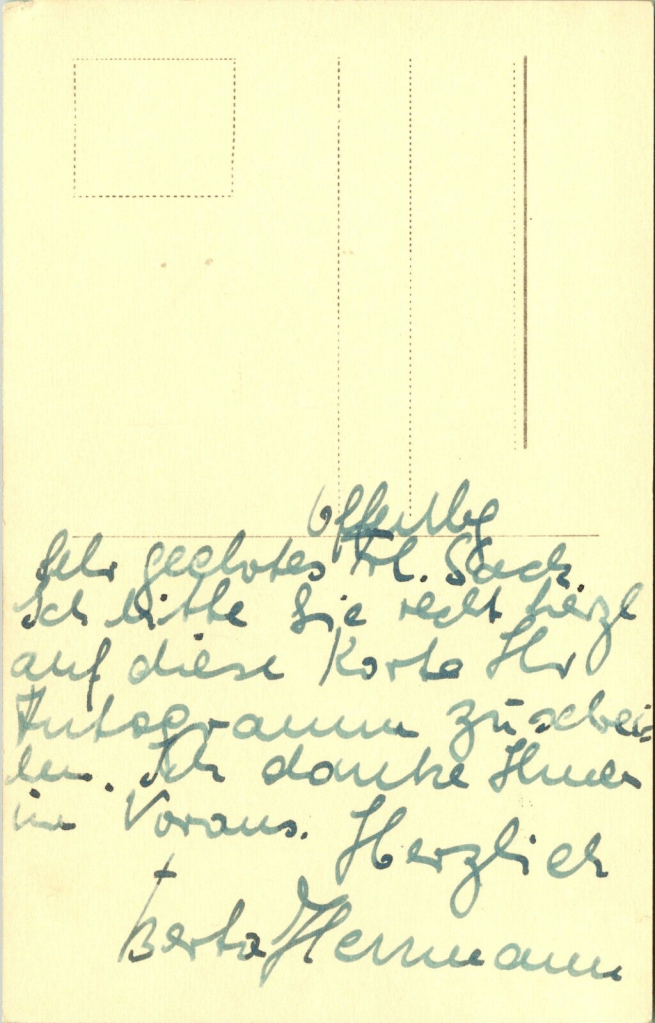 Sehr geehrtes Frl. Sack.
Ich bitte Sie recht herzl
auf diese Karte Ihr
Autogramm zu schrei=
ben. Ich danke Ihnen
im Voraus. Herzlich
Berta Herrmann